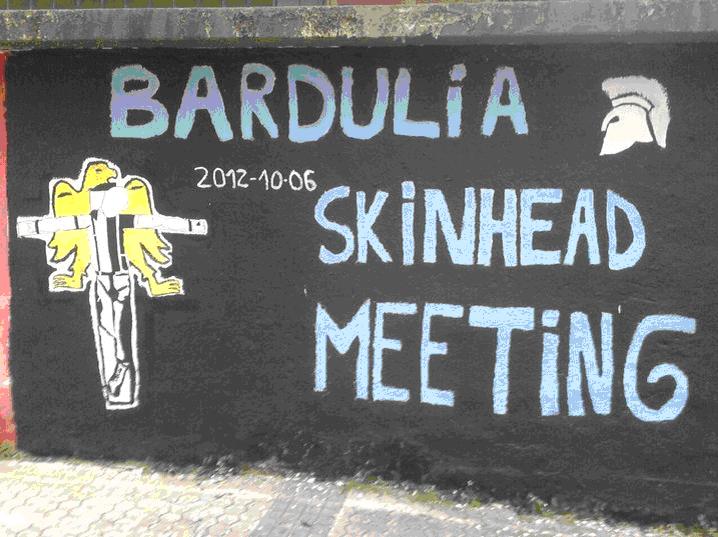 BARDULiA
2012-10-06
SKiNHEAD
MEETiNG